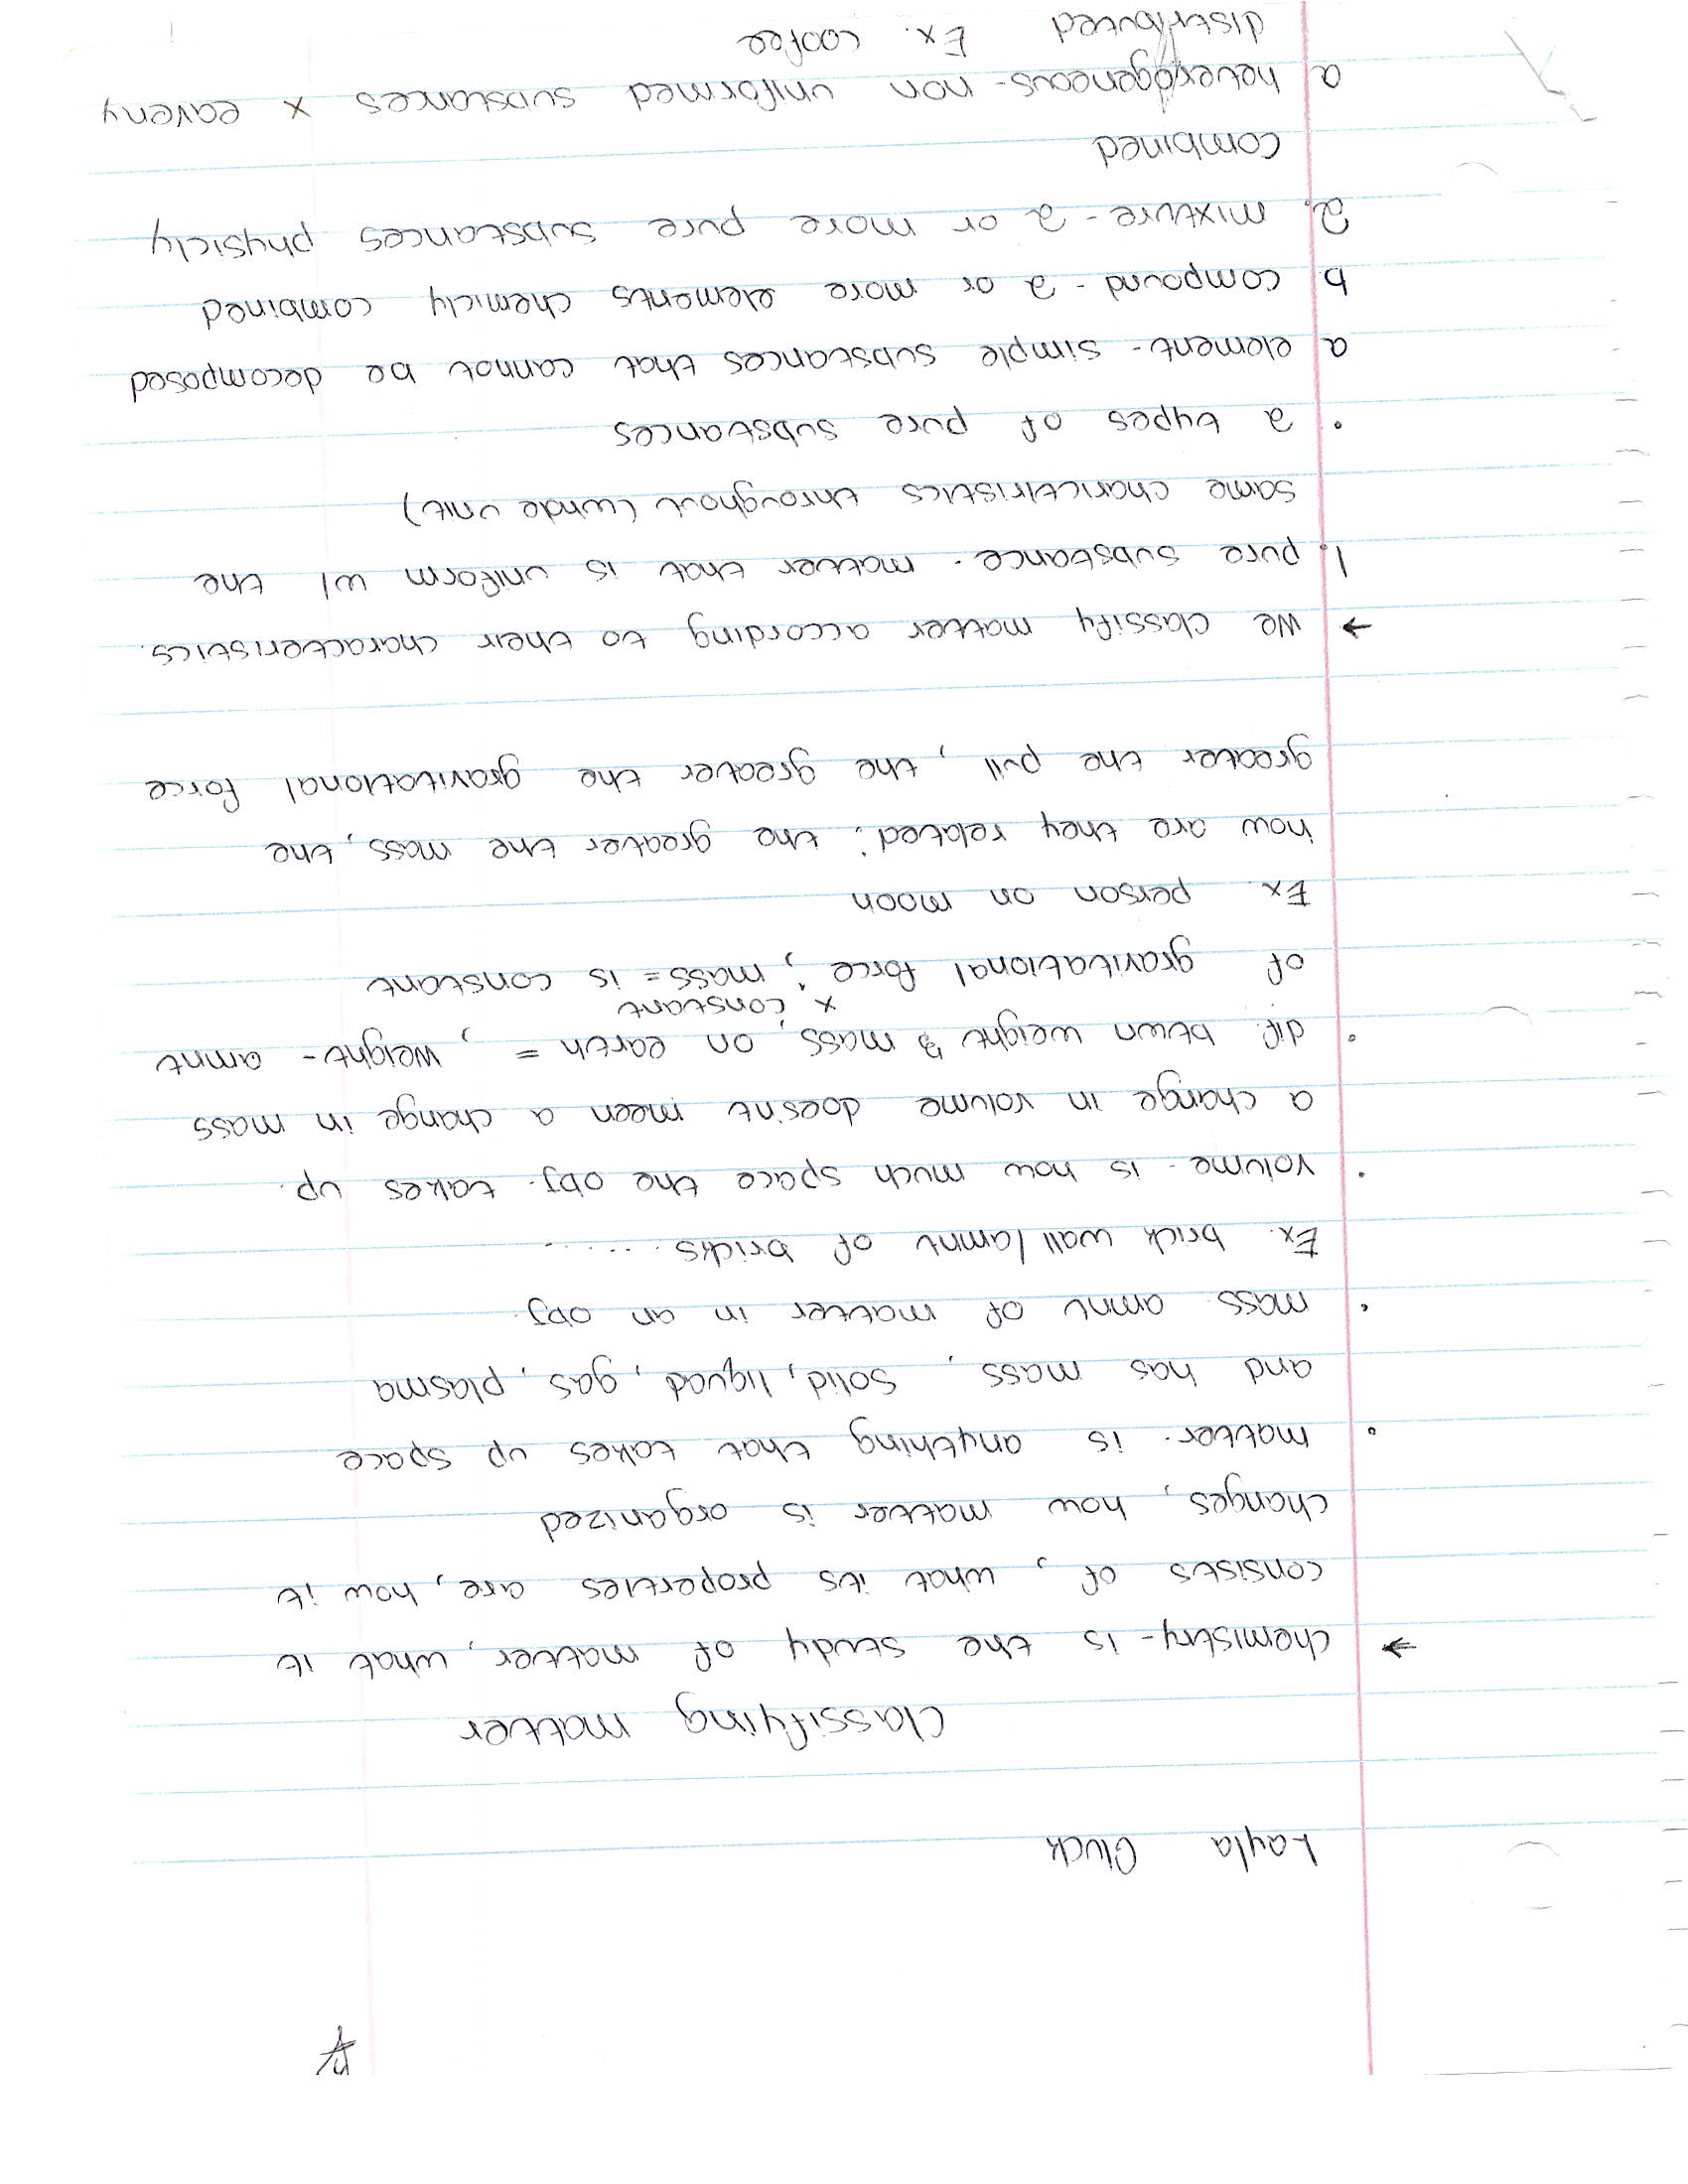 Layla Gluck
Classifying matter
→ chemistry - is the study of matter, what it
consists of, what its properties are, how it
changes, how matter is organized
• matter - is anything that takes up space
and has mass, solid, liquad, gas, plasma
• mass - amnt of matter in an obj.
Ex. brick wall / amnt of bricks ......
• volume - is how much space the obj. takes up.
a change in volume doesnt meen a change in mass
• dif. btwn weight & mass; on earth = , weight - amnt
x constant
of gravitational force; mass = is constant
Ex. person on moon
how are they related: the greater the mass, the
greater the pull, the greater the gravitational force
→ We classify matter according to their characteristics.
1. pure substance - matter that is uniform w/ the
same charictiristics throughout (whole unit)
• 2 types of pure substances
a element - simple substances that cannot be decomposed
b compound - 2 or more elements chemicly combined
2. mixture - 2 or more pure substances physicly
combined
a heterogeneous - non uniformed substances x eaveny
distributed Ex. coofee